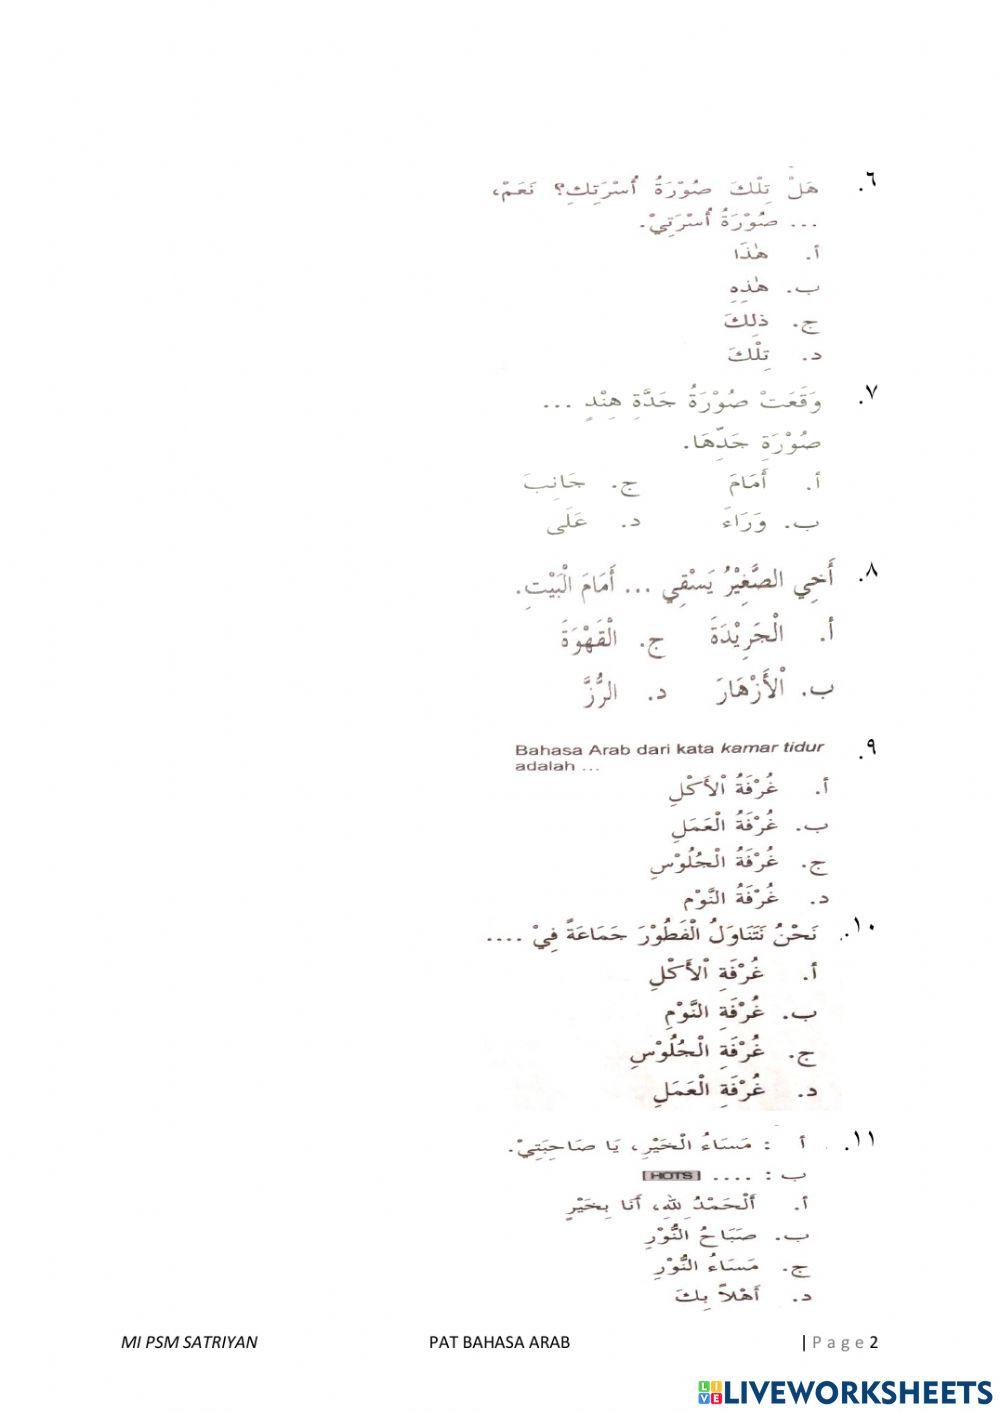 ٦. هَلْ تِلْكَ صُوْرَةُ أُسْرَتِكِ؟ نَعَمْ،
... صُوْرَةُ أُسْرَتِيْ.
أ. هٰذَا
ب. هٰذِهِ
ج. ذٰلِكَ
د. تِلْكَ
٧. وَقَعَتْ صُوْرَةُ جَدَّةِ هِنْدٍ ...
صُوْرَةِ جَدِّهَا.
أ. أَمَامَ ج. جَانِبَ
ب. وَرَاءَ د. عَلَى
٨. أَخِي الصَّغِيْرُ يَسْقِي ... أَمَامَ الْبَيْتِ.
أ. الْجَرِيْدَةَ ج. الْقَهْوَةَ
ب. الْأَزْهَارَ د. الرُّزَّ
٩. Bahasa Arab dari kata kamar tidur
adalah ...
أ. غُرْفَةُ الْأَكْلِ
ب. غُرْفَةُ الْعَمَلِ
ج. غُرْفَةُ الْجُلُوْسِ
د. غُرْفَةُ النَّوْمِ
١٠. نَحْنُ نَتَنَاوَلُ الْفَطُوْرَ جَمَاعَةً فِيْ ....
أ. غُرْفَةِ الْأَكْلِ
ب. غُرْفَةِ النَّوْمِ
ج. غُرْفَةِ الْجُلُوْسِ
د. غُرْفَةِ الْعَمَلِ
١١. أ : مَسَاءُ الْخَيْرِ، يَا صَاحِبَتِيْ.
ب : .... HOTS
أ. اَلْحَمْدُ لِلّٰهِ، أَنَا بِخَيْرٍ
ب. صَبَاحُ النُّوْرِ
ج. مَسَاءُ النُّوْرِ
د. أَهْلاً بِكَ
MI PSM SATRIYAN PAT BAHASA ARAB | Page 2
LIVE LIVEWORKSHEETS